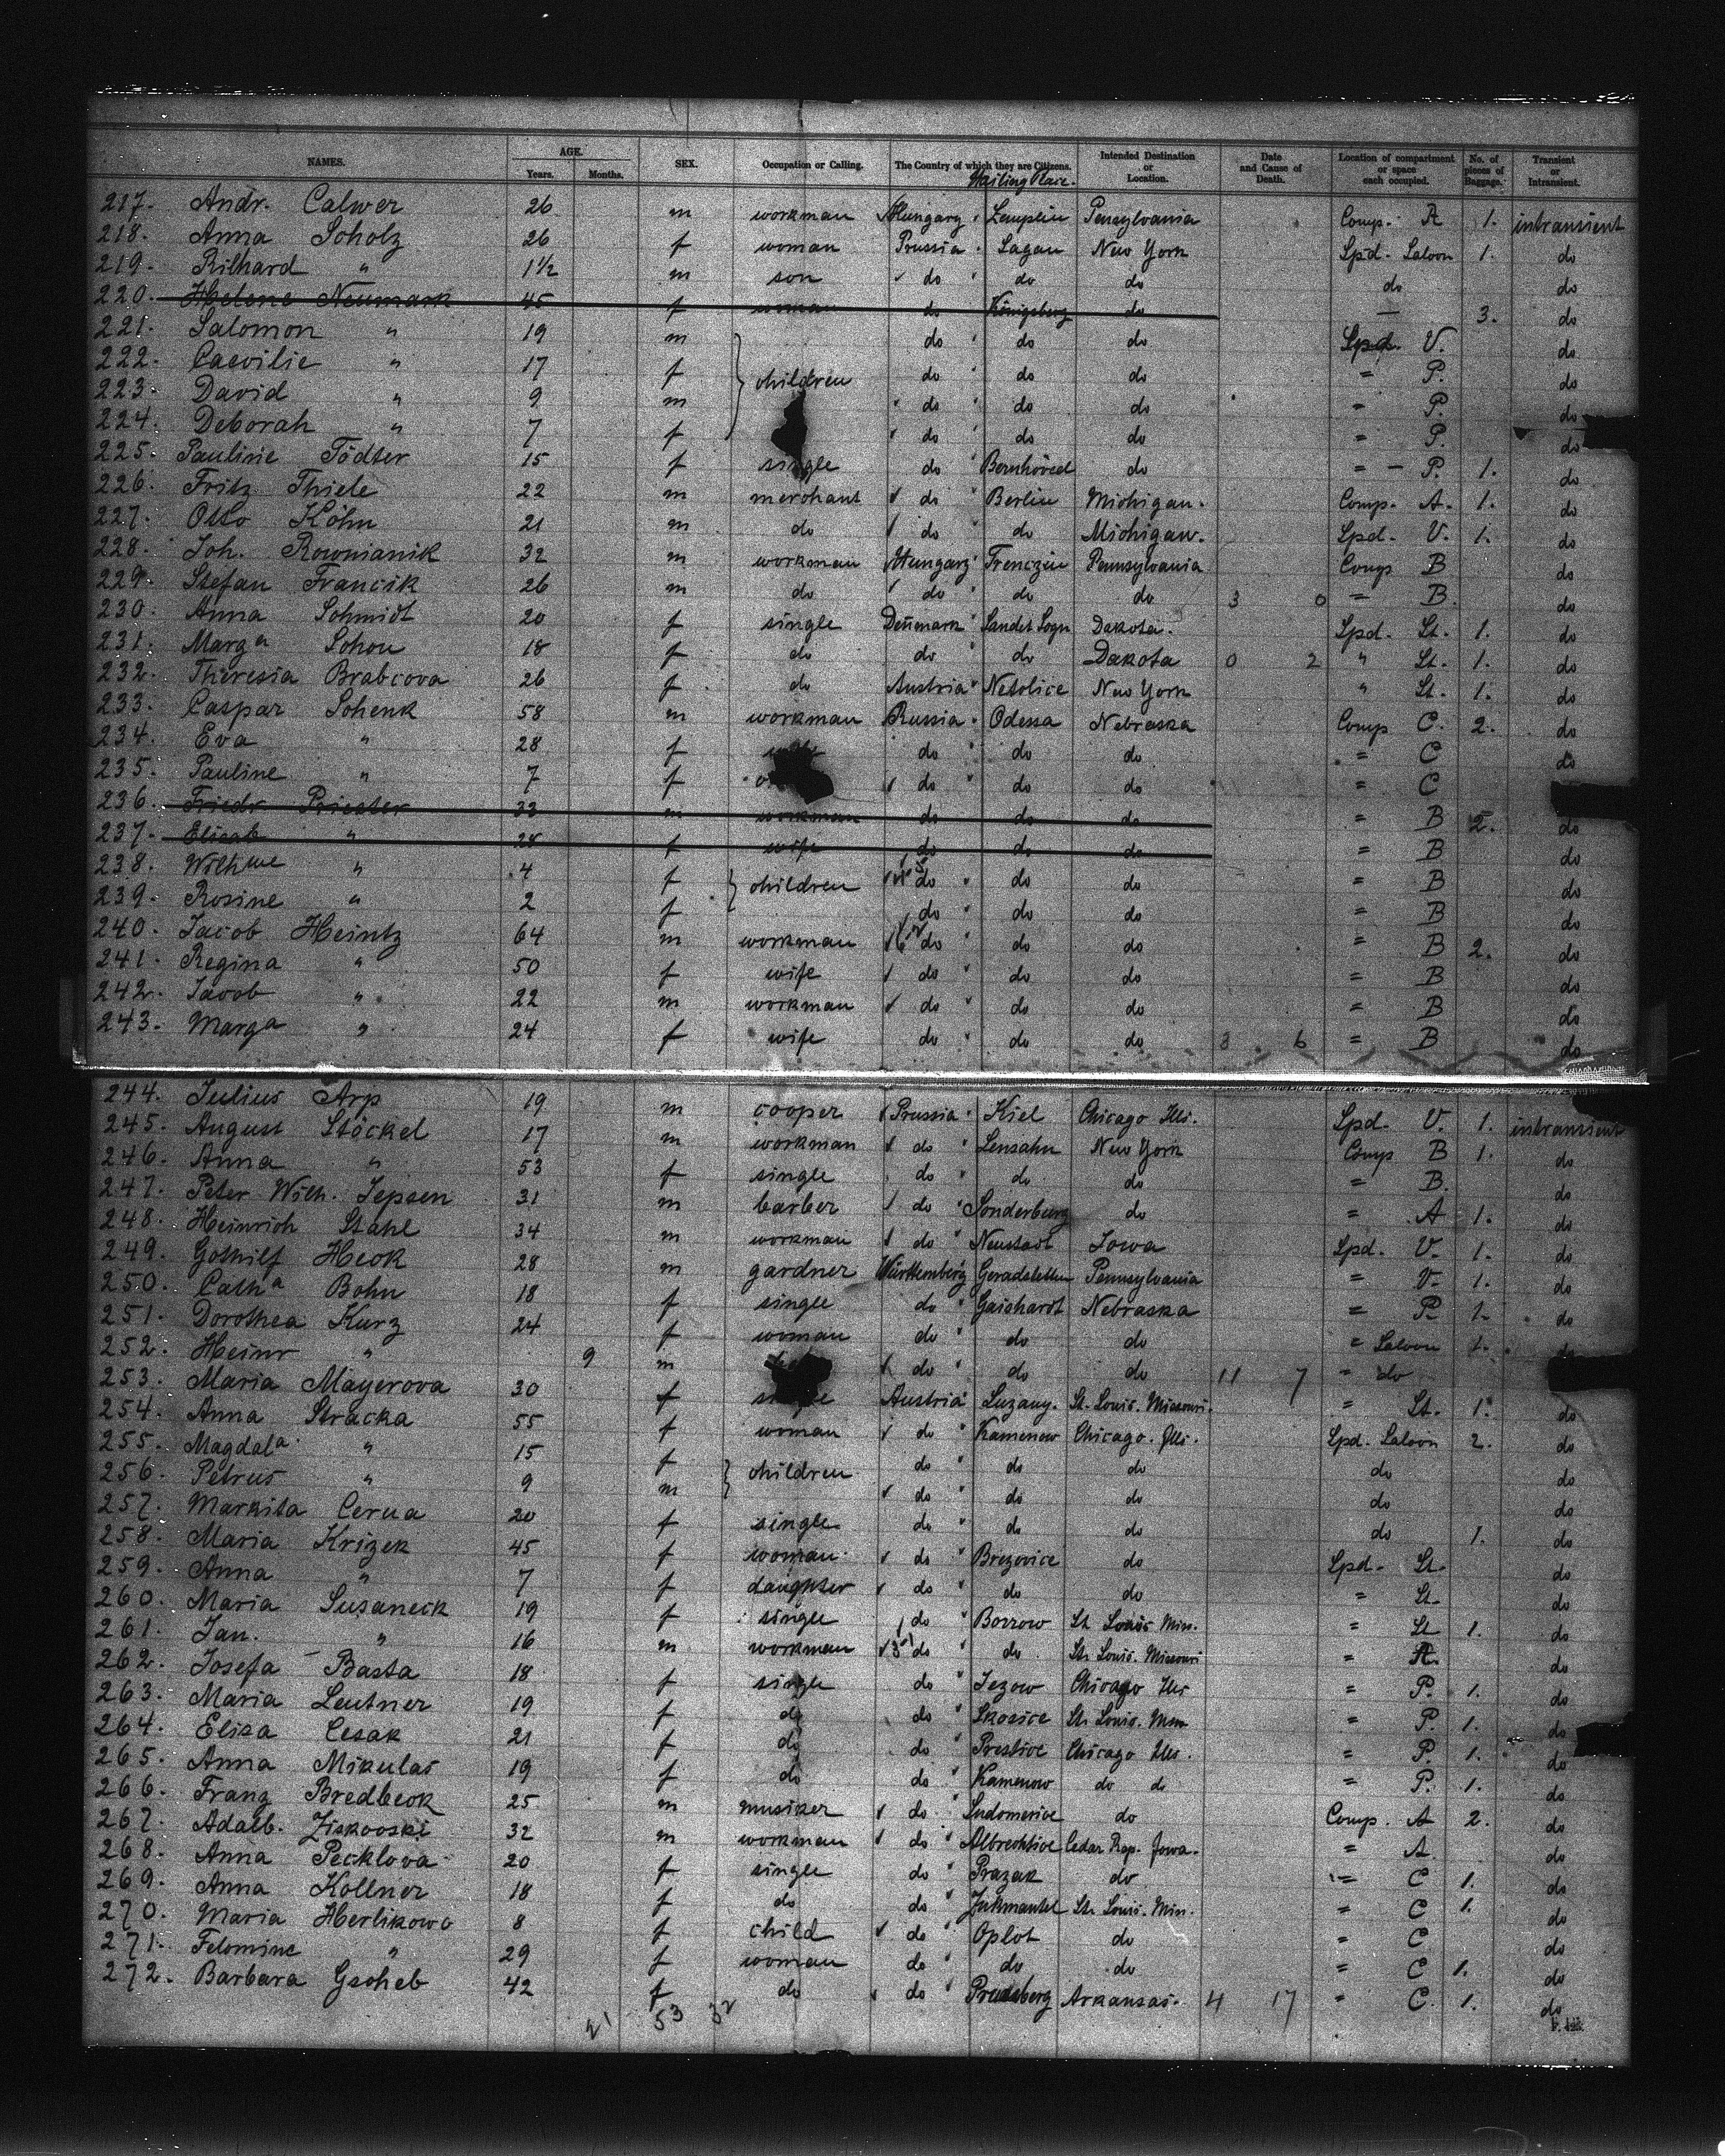 NAMES. AGE. Years. Months. SEX. Occupation or Calling. The Country of which they are Citizens. Intended Destination or Location. Date and Cause of Death. Location of compartment or space each occupied. No. of pieces of Baggage. Transient or Intransient.
217. Andr. Calwer 26 m workman Hungary Zemplin Pensylvania Comp. A 1. intransient
218. Anna Scholz 26 f woman Prussia Sagan New York Spd. Saloon 1. do
219. Rilhard " 1½ m son do do do do do
220. Helene Neumark 45 f woman do Königsberg do — 3. do
221. Salomon " 19 m do do do Spd. V. do
222. Caecilie " 17 f children do do do = P. do
223. David " 9 m do do do = P. do
224. Deborah " 7 f do do do = P. do
225. Pauline Tödter 15 f single do Bornhöved do = P. 1. do
226. Fritz Thiele 22 m merchant do Berlin Michigan. Comp. A. 1. do
227. Otto Köhn 21 m do do do Michigan. Spd. V. 1. do
228. Joh. Rownianik 32 m workman Hungary Trenczin Pennsylvania Comp B do
229. Stefan Francik 26 m do do do do 3 0 = B. do
230. Anna Schmidt 20 f single Denmark Sandet Sogn Dakota. Spd. St. 1. do
231. Marga Schou 18 f do do do Dakota 0 2 " St. 1. do
232. Theresia Brabcova 26 f do Austria Netolice New York " St. 1. do
233. Caspar Schenk 58 m workman Russia Odessa Nebraska Comp C. 2. do
234. Eva " 28 f do do do = C do
235. Pauline " 7 f do do do = C
236. Friedr Priester 33 m workman do do do = B 2. do
237. Elisab " 28 f wife do do do = B do
238. Wilhme " 4 f children do do do = B do
239. Rosine " 2 f do do do = B do
240. Jacob Heintz 64 m workman do do do = B 2. do
241. Regina " 50 f wife do do do = B do
242. Jacob " 22 m workman do do do = B do
243. Marga " 24 f wife do do do 3 6 = B do
244. Julius Arp 19 m cooper Prussia Kiel Chicago Ills. Spd. V. 1. intransient
245. August Stöckel 17 m workman do Lensahn New York Comp B 1. do
246. Anna " 53 f single do do do = B. do
247. Peter Wilh. Jepsen 31 m barber do Sonderburg do = A 1. do
248. Heinrich Stahl 34 m workman do Neustadt Iowa Spd. V. 1. do
249. Gothilf Heck 28 m gardner Württemberg Geradstetten Pennsylvania = V. 1. do
250. Catha Bohn 18 f single do Gaishardt Nebraska = P. 1. do
251. Dorothea Kurz 24 f woman do do do = Saloon 1. do
252. Heinr " 9 m do do do 11 7 = do
253. Maria Mayerova 30 f single Austria Luzany. St. Louis. Missouri. = St. 1. do
254. Anna Stracka 55 f woman do Kamenow Chicago. Ills. Spd. Saloon 2. do
255. Magdala " 15 f children do do do do do
256. Petrus " 9 m do do do do do
257. Markita Cerna 20 f single do do do do 1. do
258. Maria Krizek 45 f woman do Brezovice do Spd. St. do
259. Anna " 7 f daughter do do do = St. do
260. Maria Susaneck 19 f single do Borrow St Louis Miss. = St 1. do
261. Jan. " 16 m workman do do St. Louis. Missouri = A. do
262. Josefa Basta 18 f single do Jezow Chicago Ills = P. 1. do
263. Maria Leutner 19 f do do Skosice St. Louis. Miss = P. 1. do
264. Elisa Cesak 21 f do do Prestice Chicago Ills. = P. 1. do
265. Anna Mikulas 19 f do do Kamenow do do = P. 1. do
266. Franz Bredbeck 25 m musiker do Sudomerice do Comp. A 2. do
267. Adalb. Ziskooski 32 m workman do Albrechtice Cedar Rap. Iowa. = A. do
268. Anna Pecklova 20 f single do Prazak do = C 1. do
269. Anna Kollner 18 f do do Zukmantel St. Louis. Miss. = C 1. do
270. Maria Herlikowo 8 f child do Oplot do = C do
271. Felomine " 29 f woman do do do = C 1. do
272. Barbara Gscheb 42 f do do Arkansas. 4 17 " C. 1. do
21 53 32